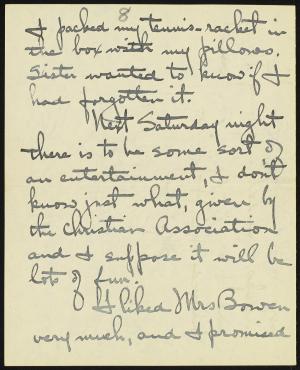 8
I packed my tennis-racket in
the box with my pillows.
Sister wanted to know if I
had forgotten it.
Next Saturday night
there is to be some sort of
an entertainment, I don't
know just what, given by
the Christian Association
and I suppose it will be
lots of fun.
I liked Mrs Bowen
very much, and I promised